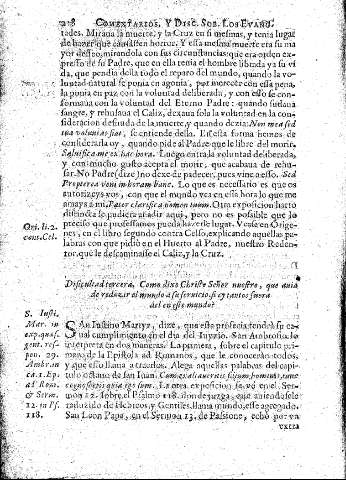 218 COMENTARIOS, Y DISC. SOB. LOS EVANG.
tades. Miraua la muerte, y la Cruz en si mesmas, y tenia lugar
de hazer que causassen horror. Y essa mesma muerte era su ma
yor desseo, mirandola con sus circunstancias: que era orden ex-
presso de su Padre, que en ella tenia el hombre librada ya su vi
da, que pendia della todo el reparo del mundo, quando la vo-
luntad natural se ponia en agonia, por morir con essa pena,
la ponia en paz con la voluntad deliberada, y con esso se con-
formaua con la voluntad del Eterno Padre: quando sudaua
sangre, y rehusaua el Caliz, dexaua sola la voluntad en la con-
sideracion desnuda de la muerte, y quando dezia: Non mea sed
tua voluntas fiat, se entiende della. En esta forma hemos de
considerarla oy, quando pide al Padre que le libre del morir.
Saluifica me ex hac hora. Luego entra la voluntad deliberada,
y con mucho gusto acepta el morir, que acabaua de rehu-
sar. No Padre (dize) no dexe de padecer, pues vine a esso. Sed
Propterea veni in horam hanc. Lo que es necessario es que os
autorizeys vos, con que el mundo vea en essa hora lo que me
amays a mi. Pater clarifica nomen tuum. Otra exposicion harto
distincta le pudiera añadir aqui, pero no es possible que lo
preciso que professamos pueda hazerle lugar. Vease en Orige-
nes, en el libro segundo contra Celso, explicando aquellas pa-
labras con que pidio en el Huerto al Padre, nuestro Reden-
tor, que le descaminasse el Caliz, y la Cruz.
Ori. li. 2.
cont. Cel.
Dificultad tercera, Como dixo Christo Señor nuestro, que auia
de reduzir el mundo a su seruicio, si ay tantos fuera
del en este mundo?
S. Iusti.
Mar. in
exp. quæs.
gent. res-
pon. 29.
Ambr. an
ca. 1. Ep.
ad Rom.
& Serm.
12. in Ps.
118.
SAn Iustino Martyr, dize, que esta profecia tendrà su ca-
bal cumplimiento en el dia del Iuyzio. San Ambrosio lo
interpreta en dos maneras. La primera, sobre el capitulo pri-
mero de la Epistola ad Romanos, que le conoceràn todos,
y que esso llama a traerlos. Alega aquellas palabras del capi-
tulo octauo de san Iuan. Cum exaltaueritis filium hominis, tunc
cognoscetis quia ego sum. La otra exposicion se vè en el Ser-
mon 12. sobre el Psalmo 118. donde juzga, que auiendose le
traduzido de Hebreos, y Gentiles, llama mundo, esse agregado.
San Leon Papa, en el Sermon 13. de Passione, echò por vn
extra